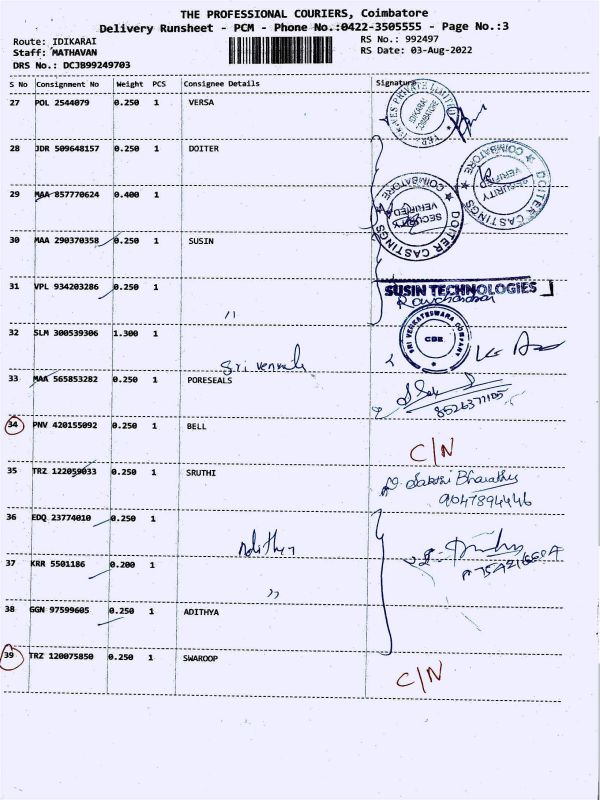 THE PROFESSIONAL COURIERS, Coimbatore
Delivery Runsheet - PCM - Phone No.:0422-3505555 - Page No.:3
Route: IDIKARAI RS No.: 992497
Staff: MATHAVAN RS Date: 03-Aug-2022
DRS No.: DCJB99249703
S No Consignment No Weight PCS Consignee Details Signature
27 POL 2544079 0.250 1 VERSA
IDIKARAI COIMBATORE
28 JDR 509648157 0.250 1 DOITER
DOITER CASTINGS COIMBATORE SECURITY VERIFIED
29 MAA 857770624 0.400 1
DOITER CASTINGS COIMBATORE SECURITY VERIFIED
30 MAA 290370358 0.250 1 SUSIN
31 VPL 934203286 0.250 1
SUSIN TECHNOLOGIES
"
32 SLM 300539306 1.300 1
SRI VENKATESWARA COMPANY CBE
Sri venkate
33 MAA 565853282 0.250 1 PORESEALS
8526371105
34 PNV 420155092 0.250 1 BELL
C/N
35 TRZ 122059033 0.250 1 SRUTHI
Sakthi Bharathy
9047894446
36 EDQ 23774010 0.250 1
Adithya
37 KRR 5501186 0.200 1
"
38 GGN 97599605 0.250 1 ADITHYA
39 TRZ 120075850 0.250 1 SWAROOP
C/N